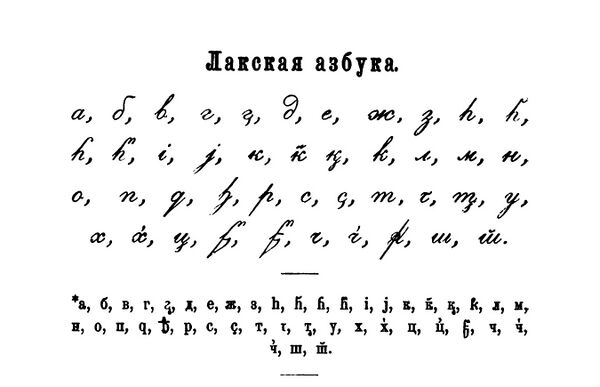 Лакская азбука.
а, б, в, г, д, е, ж, з, һ,
і, ј, к, к̆, қ, л, м, н,
о, п, q, р, с, ҫ, т, у,
х, х́, ц, ч, ч́, ш, ш̆.
*а, б, в, г, д, е, ж, з, һ, і, ј, к, к̆, қ, л, м,
н, о, п, q, р, с, ҫ, т, у, х, х́, ц, ч, ч́,
ш, ш̆.